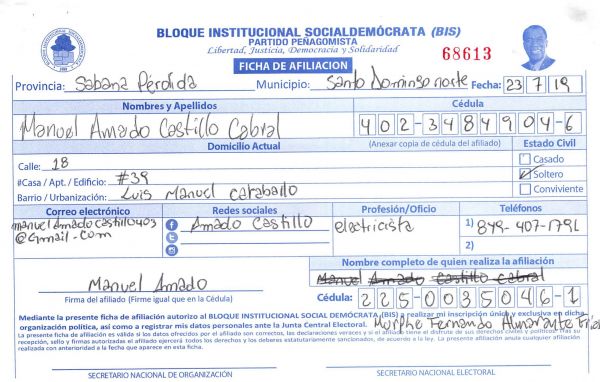 BLOQUE INSTITUCIONAL SOCIALDEMÓCRATA (BIS)
PARTIDO PEÑAGOMISTA
Libertad, Justicia, Democracia y Solidaridad
68613
FICHA DE AFILIACION
Provincia: Sabana Pérdida Municipio: Santo Domingo norte Fecha: 23 7 19
Nombres y Apellidos Cédula
Manuel Amado Castillo Cabral 402-3484904-6
Domicilio Actual (Anexar copia de cédula del afiliado) Estado Civil
Calle: 18 Casado
#Casa / Apt. / Edificio: #39 Soltero
Barrio / Urbanización: Luis Manuel Caraballo Conviviente
Correo electrónico Redes sociales Profesión/Oficio Teléfonos
manuelAmadocastillo403 Amado Castillo electricista 1) 849-407-1791
@Gmail-com 2)
Nombre completo de quien realiza la afiliación
Manuel Amado Manuel Amado Castillo Cabral
Firma del afiliado (Firme igual que en la Cédula) Cédula: 225-0035046-1
Mediante la presente ficha de afiliación autorizo al BLOQUE INSTITUCIONAL SOCIAL DEMÓCRATA (BIS) a realizar mi inscripción única y exclusiva en dicha
organización política, así como a registrar mis datos personales ante la Junta Central Electoral. Fernando Almorante
La presente ficha de afiliación es válida si los datos ofrecidos por el afiliado son correctos, las declaraciones veraces y si el afiliado tiene el disfrute de sus derechos civiles y políticos. Tras su
recepción, sello y firmas autorizadas el afiliado ejercerá todos los derechos y los deberes estatutariamente sancionados, de acuerdo a la ley. La presente afiliación anula cualquier afiliación
realizada con anterioridad a la fecha que aparece en esta ficha.
SECRETARIO NACIONAL DE ORGANIZACIÓN SECRETARIO NACIONAL ELECTORAL